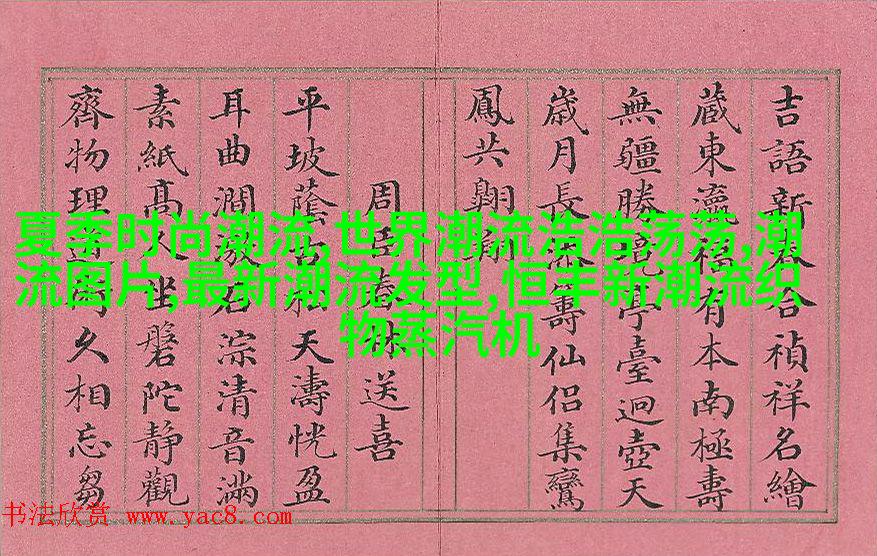 夏季时尚潮流,世界潮流浩浩荡荡,潮
流图片,最新潮流发型,恒丰新潮流织
物蒸汽机
吉語新合禎祥名繪
蔵東瀛有本南極壽
無疆勝亭臺迥壺天
歲月長壽仙侶集鸞
鳳共翱翔
周送喜
平坡蔭古天濤恍盈
耳曲澗漱石淙清音滿
素紙高人坐磐陀靜觀
齊物理久相忘芻
书法欣赏 www.yac8.com